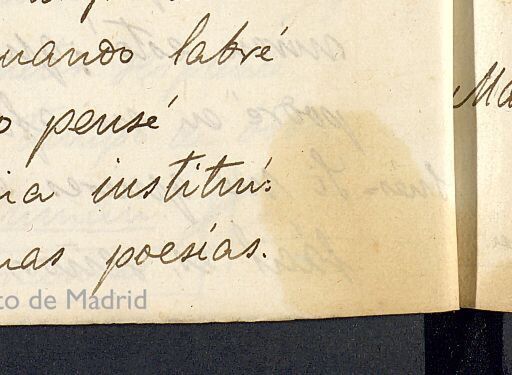 uando labré
o pensé
ia institui:
uas poesías.
to de Madrid
Ma